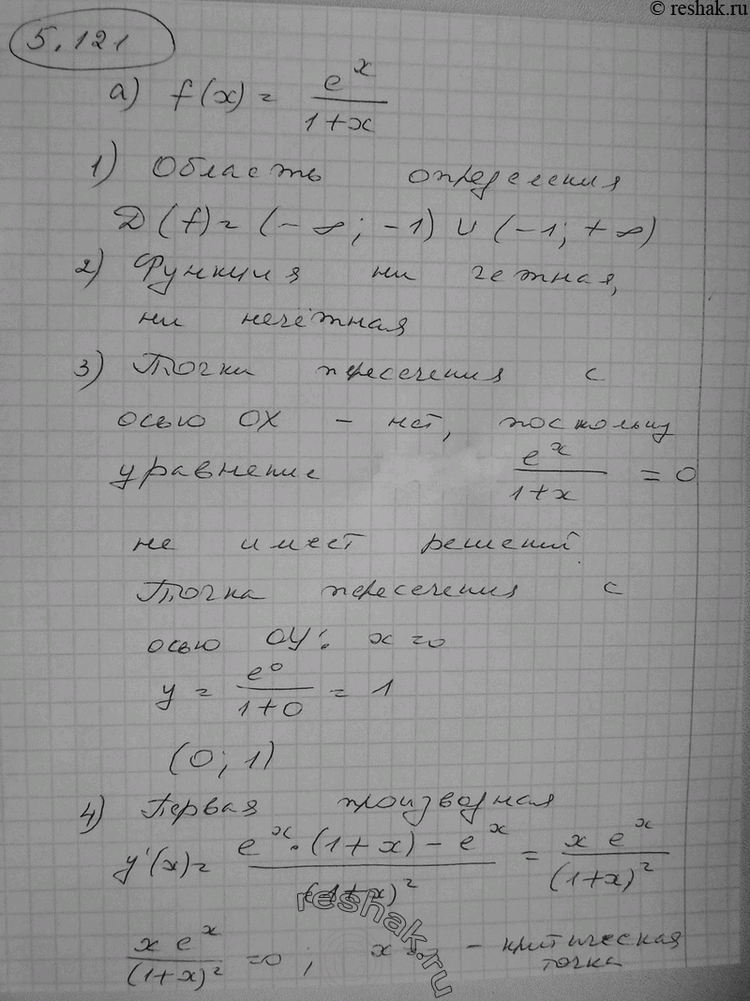 © reshak.ru
5.121
a) f(x) = e^x / (1+x)
1) Область определения
D(f) = (-∞; -1) ∪ (-1; +∞)
2) Функция ни чётная,
ни нечётная
3) Точки пересечения с
осью OX - нет, поскольку
уравнение e^x / (1+x) = 0
не имеет решений.
Точка пересечения с
осью OY: x = 0
y = e^0 / (1+0) = 1
(0; 1)
4) Первая производная
y'(x) = (e^x · (1+x) - e^x) / (1+x)^2 = x e^x / (1+x)^2
x e^x / (1+x)^2 = 0; x = - критическая
точка
reshak.ru